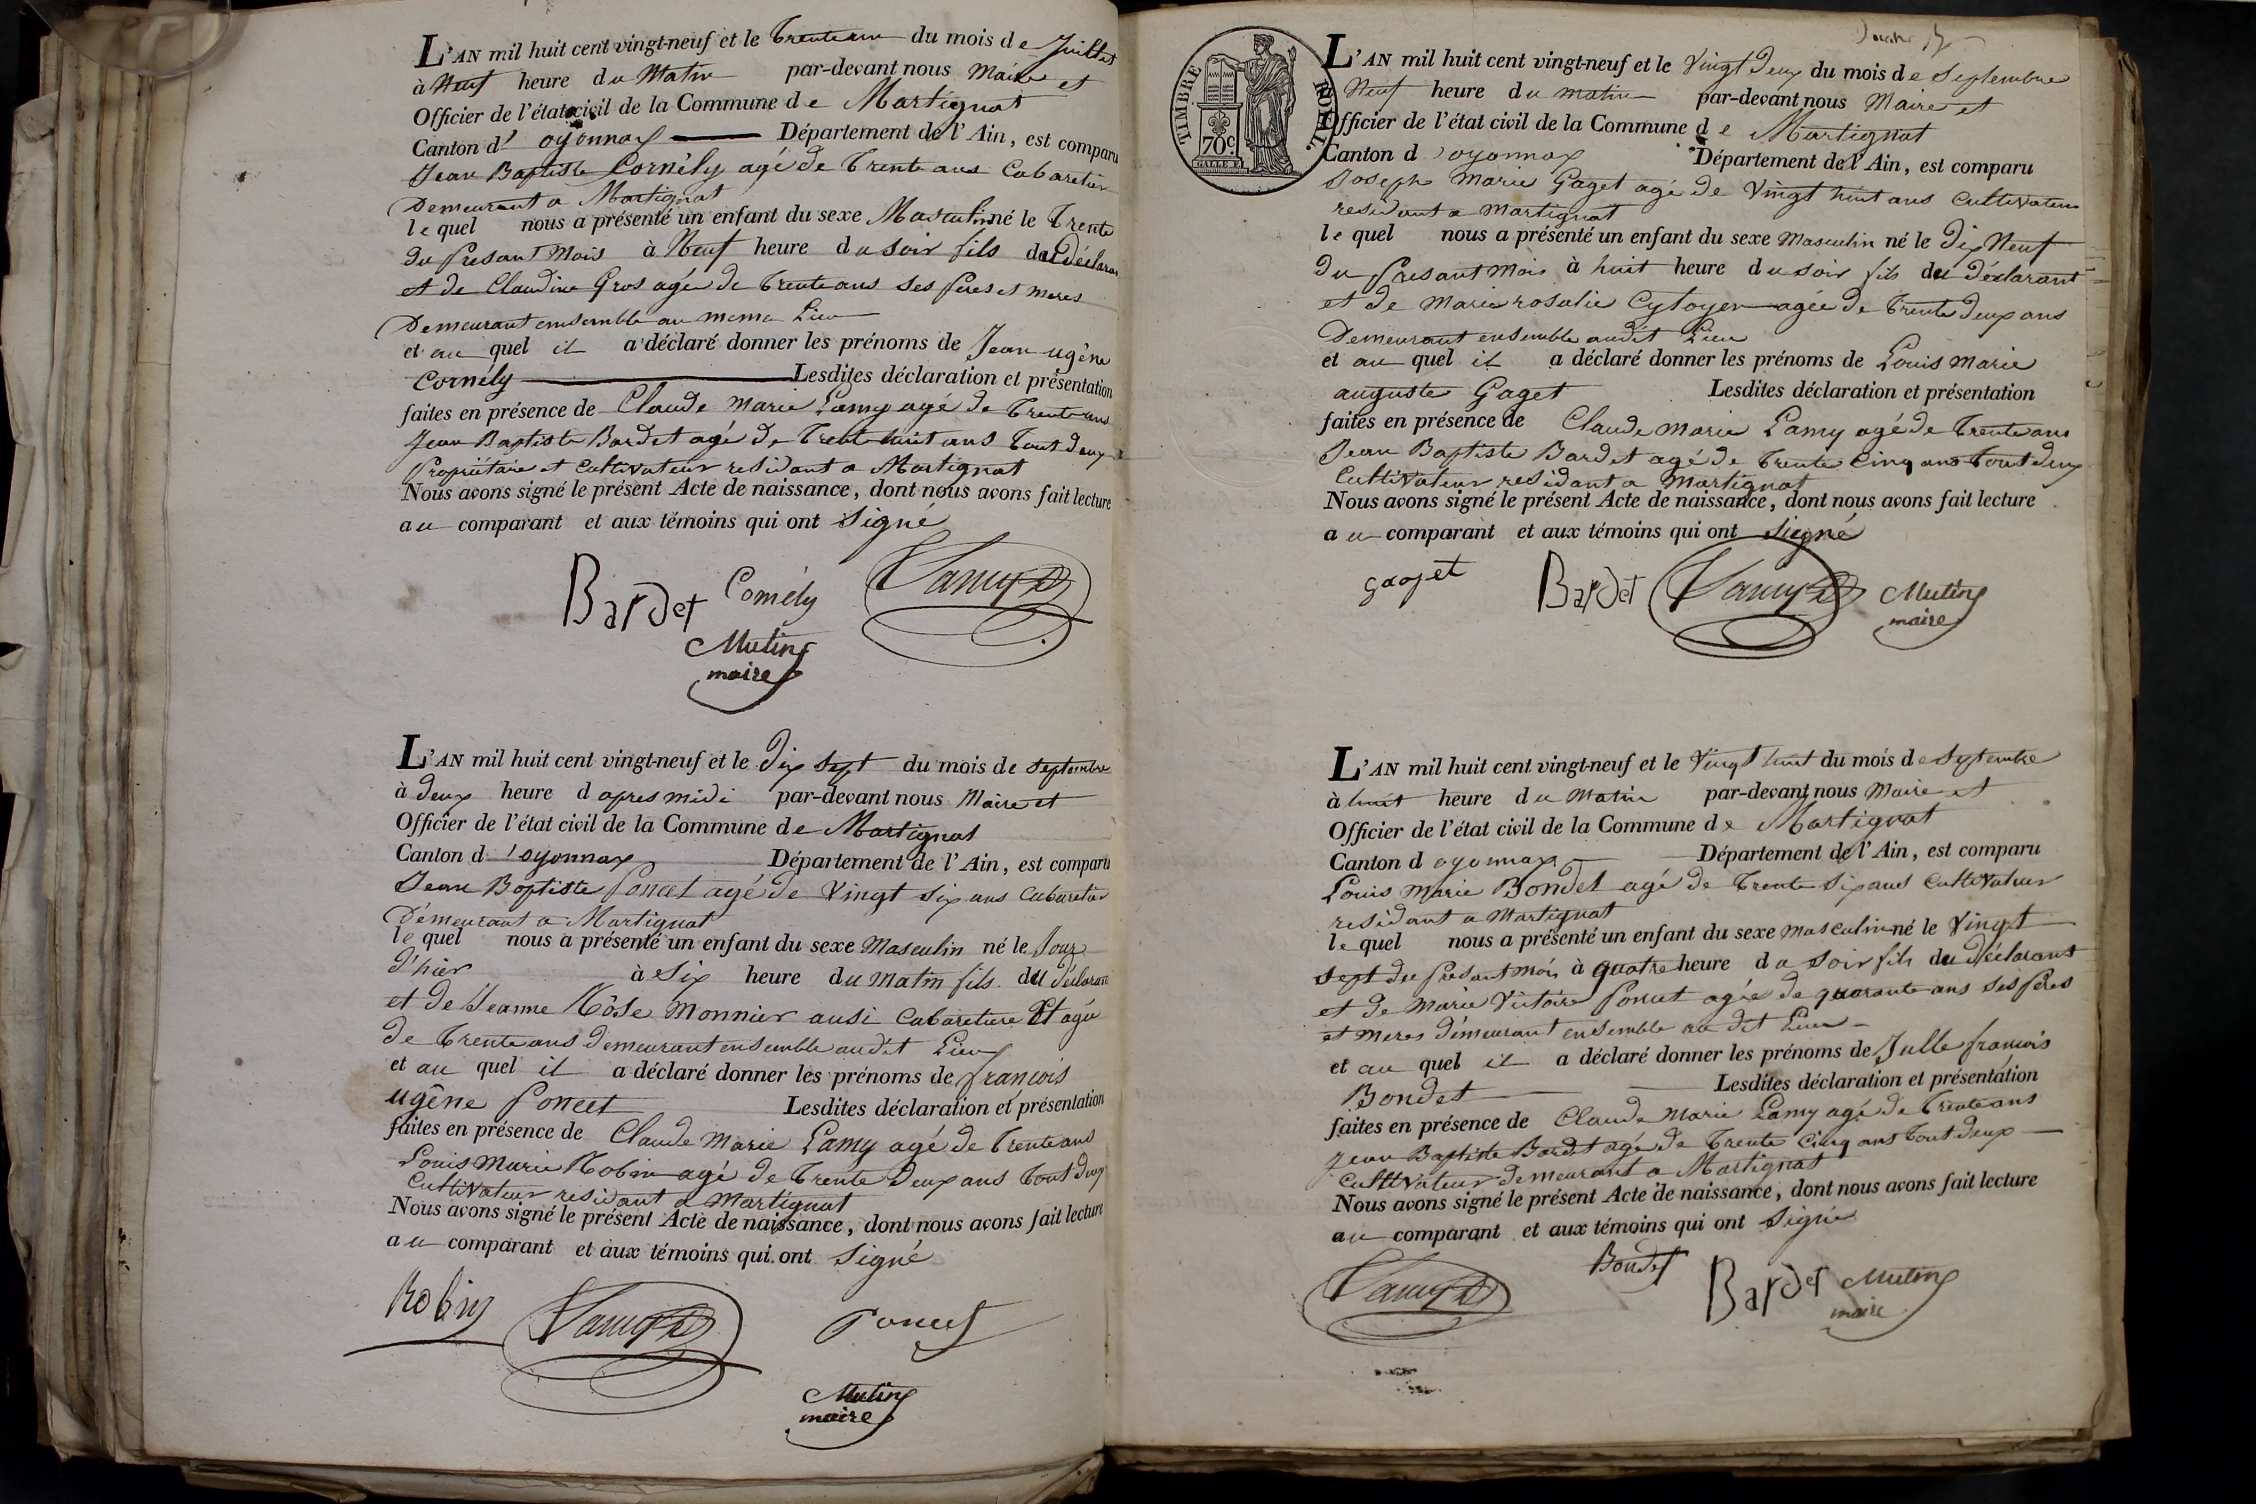 L'AN mil huit cent vingt-neuf et le trente un du mois de Juillet
à Neuf heure du Matin par-devant nous Maire et
Officier de l'état civil de la Commune de Martignat
Canton d' oyonnax Département de l'Ain, est comparu
Jean Baptiste Cornély agé de trente ans Cabaretier
Demeurant a Martignat
le quel nous a présenté un enfant du sexe Masculin né le trente
du presant Mois à Neuf heure du soir fils du déclarant
et de Claudine Gros agée de trente ans ses peres et meres
Demeurant emsemble au meme Lieu
et au quel il a déclaré donner les prénoms de Jean ugêne
Cornély Lesdites déclaration et présentation
faites en présence de Claude Marie Lamy agé de trente ans
Jean Baptiste Bardet agé de trente huit ans tout deux
Propriétaire et Cultivateur residant a Martignat
Nous avons signé le présent Acte de naissance, dont nous avons fait lecture
au comparant et aux témoins qui ont signé
Bardet Cornély Lamy
Mutin
maire
L'AN mil huit cent vingt-neuf et le Dix sept du mois de septembre
à deux heure d apres midi par-devant nous Maire et
Officier de l'état civil de la Commune de Martignat
Canton d' oyonnax Département de l'Ain, est comparu
Jean Baptiste Poncet agé de Vingt six ans Cabaretier
Demeurant a Martignat
le quel nous a présenté un enfant du sexe Masculin né le Jour
d'hier à six heure du matin fils du déclarant
et de Jeanne Rôse Monnier ausi Cabaretiere Et agée
de trente ans Demeurant ensemble audit Lieu
et au quel il a déclaré donner les prénoms de francois
ugêne Poncet Lesdites déclaration et présentation
faites en présence de Claude Marie Lamy agé de trente ans
Louis Marie Robin agé de trente Deux ans tout deux
Cultivateur residant a Martignat
Nous avons signé le présent Acte de naissance, dont nous avons fait lecture
au comparant et aux témoins qui ont signé
Robin Lamy Poncet
Mutin
maire
TIMBRE ROYAL
70c
L'AN mil huit cent vingt-neuf et le Vingt Deux du mois de septembre
Neuf heure du matin par-devant nous Maire et
Officier de l'état civil de la Commune de Martignat
Canton d oyonnax Département de l'Ain, est comparu
Joseph Marie Gaget agé de Vingt huit ans Cultivateur
residant a Martignat
le quel nous a présenté un enfant du sexe Masculin né le Dix Neuf
du Presant Mois à huit heure du soir fils du déclarant
et de Marie rosalie Cytoyen agée de trente deux ans
Demeurant ensemble audit Lieu
et au quel il a déclaré donner les prénoms de Louis Marie
auguste Gaget Lesdites déclaration et présentation
faites en présence de Claude Marie Lamy agé de trente ans
Jean Baptiste Bardet agé de trente Cinq ans tout deux
Cultivateur residant a Martignat
Nous avons signé le présent Acte de naissance, dont nous avons fait lecture
au comparant et aux témoins qui ont signé
gaget Bardet Lamy Mutin
maire
L'AN mil huit cent vingt-neuf et le Vingt huit du mois de septembre
à huit heure du Matin par-devant nous Maire et
Officier de l'état civil de la Commune de Martignat
Canton d oyonnax Département de l'Ain, est comparu
Louis Marie Bondet agé de trente six ans Cultivateur
residant a Martignat
le quel nous a présenté un enfant du sexe masculin né le Vingt
sept du presant mois à quatre heure du soir fils du déclarant
et de Marie Victoire Poncet agée de quarante ans ses peres
et meres demeurant ensemble au dit Lieu
et au quel il a déclaré donner les prénoms de Julle francois
Bondet Lesdites déclaration et présentation
faites en présence de Claude Marie Lamy agé de trente ans
Jean Baptiste Bardet agé de trente Cinq ans tout deux
Cultivateur demeurant a Martignat
Nous avons signé le présent Acte de naissance, dont nous avons fait lecture
au comparant et aux témoins qui ont signé
Lamy Bondet Bardet Mutin
maire